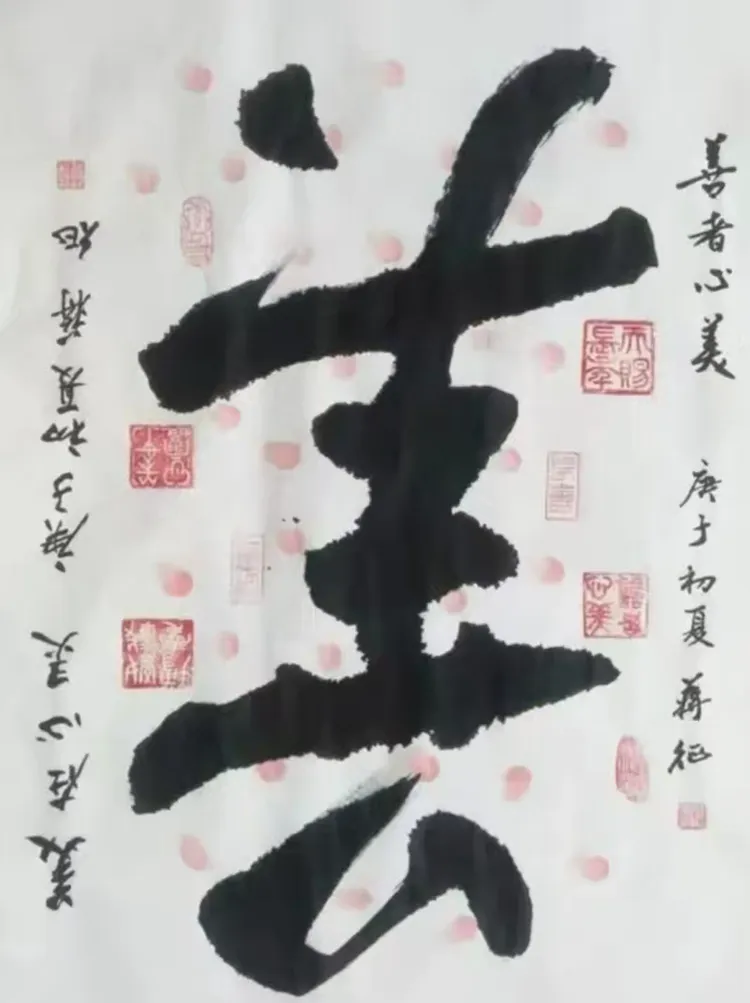 善
善者心美 庚子初夏 蒋征
美在心灵 庚子初夏 蒋征